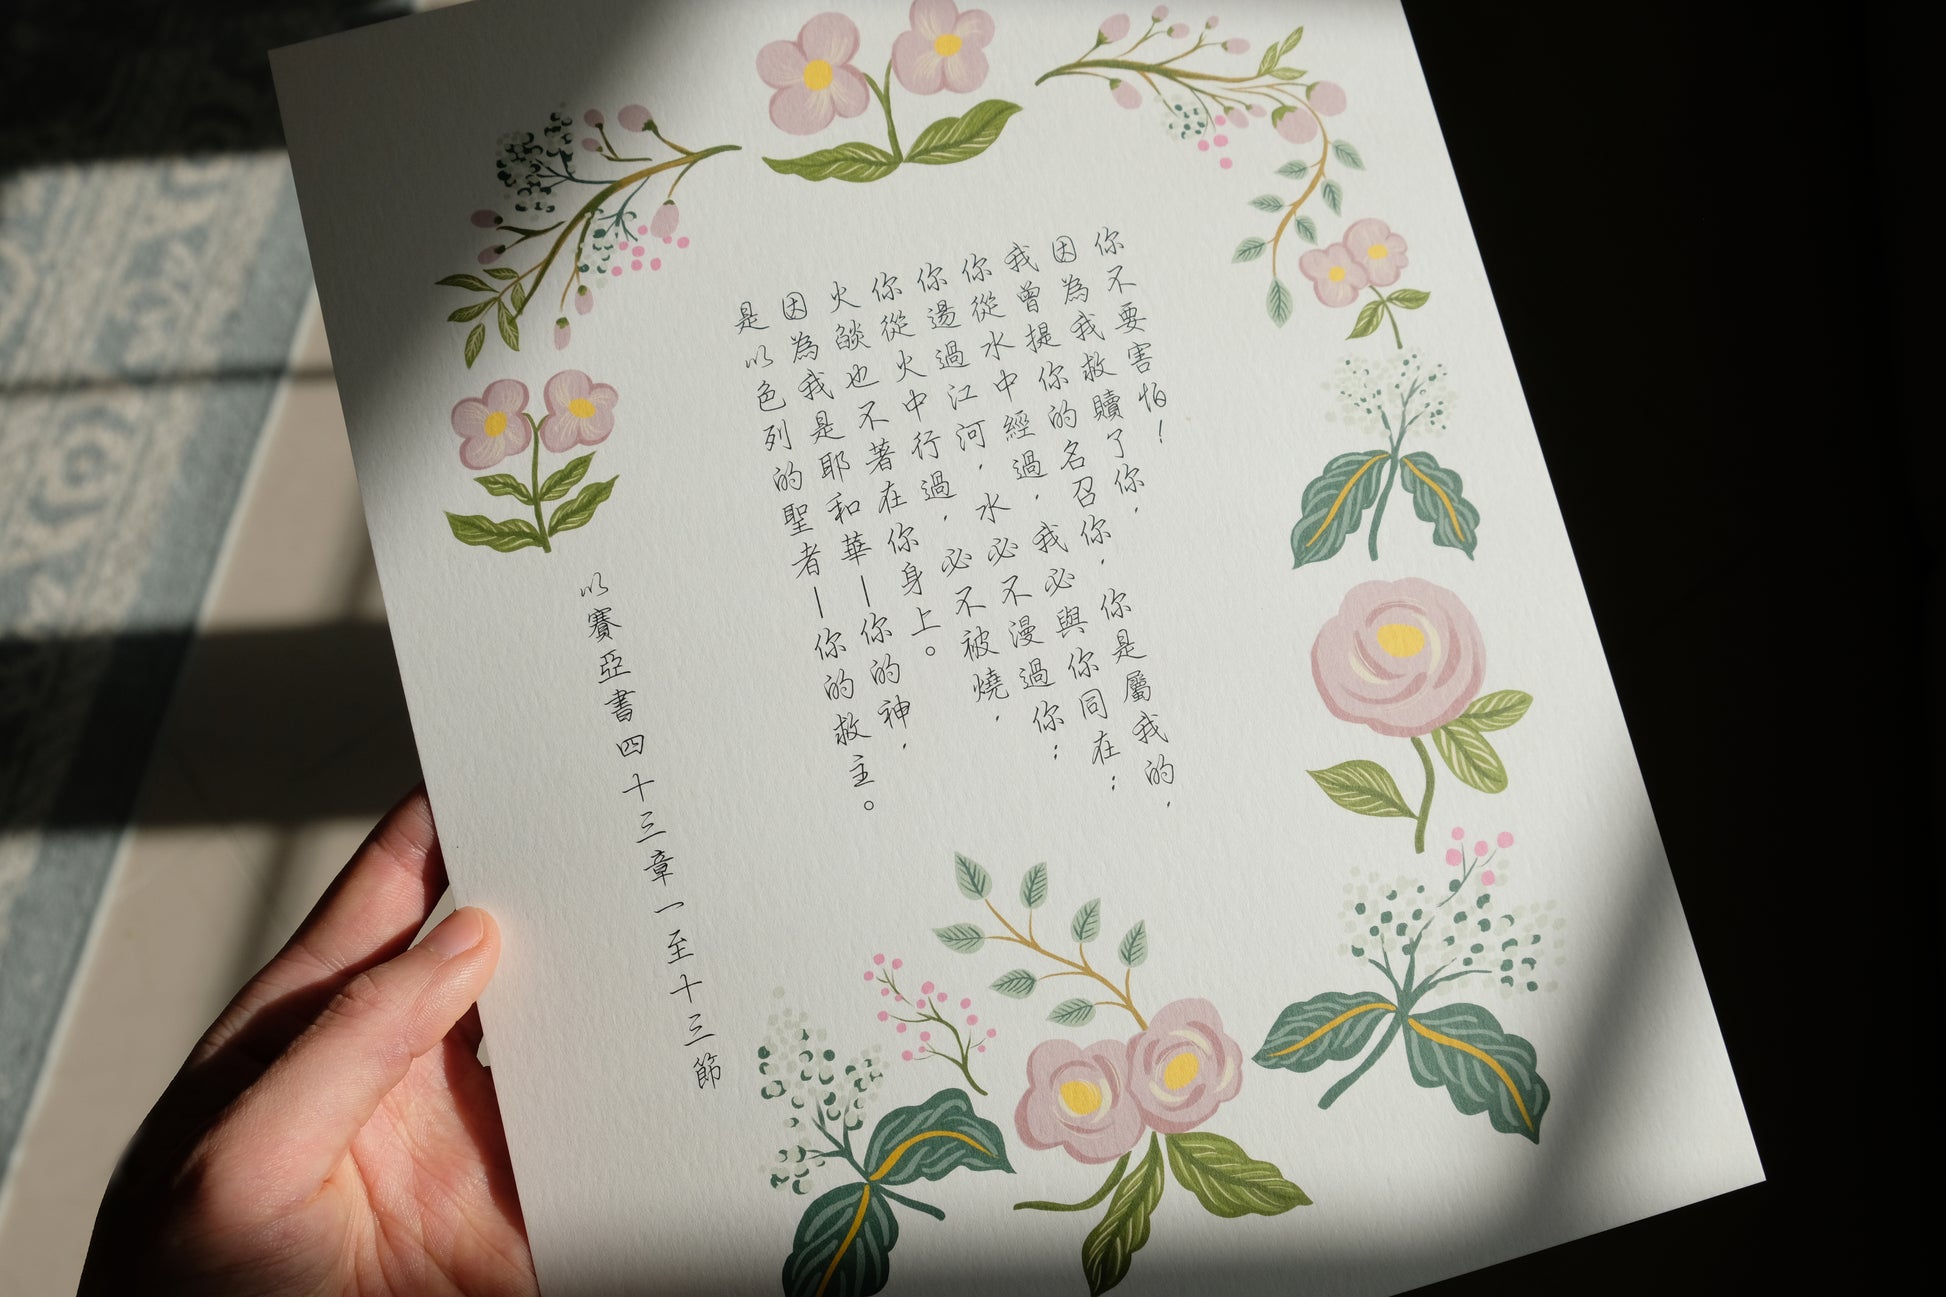 你不要害怕！
因為我救贖了你，
我曾提你的名召你，你是屬我的，
你從水中經過，我必與你同在；
你逿過江河，水必不漫過你；
你從火中行過，必不被燒，
火燄也不著在你身上。
因為我是耶和華—你的神，
是以色列的聖者—你的救主。
以賽亞書四十三章一至十三節